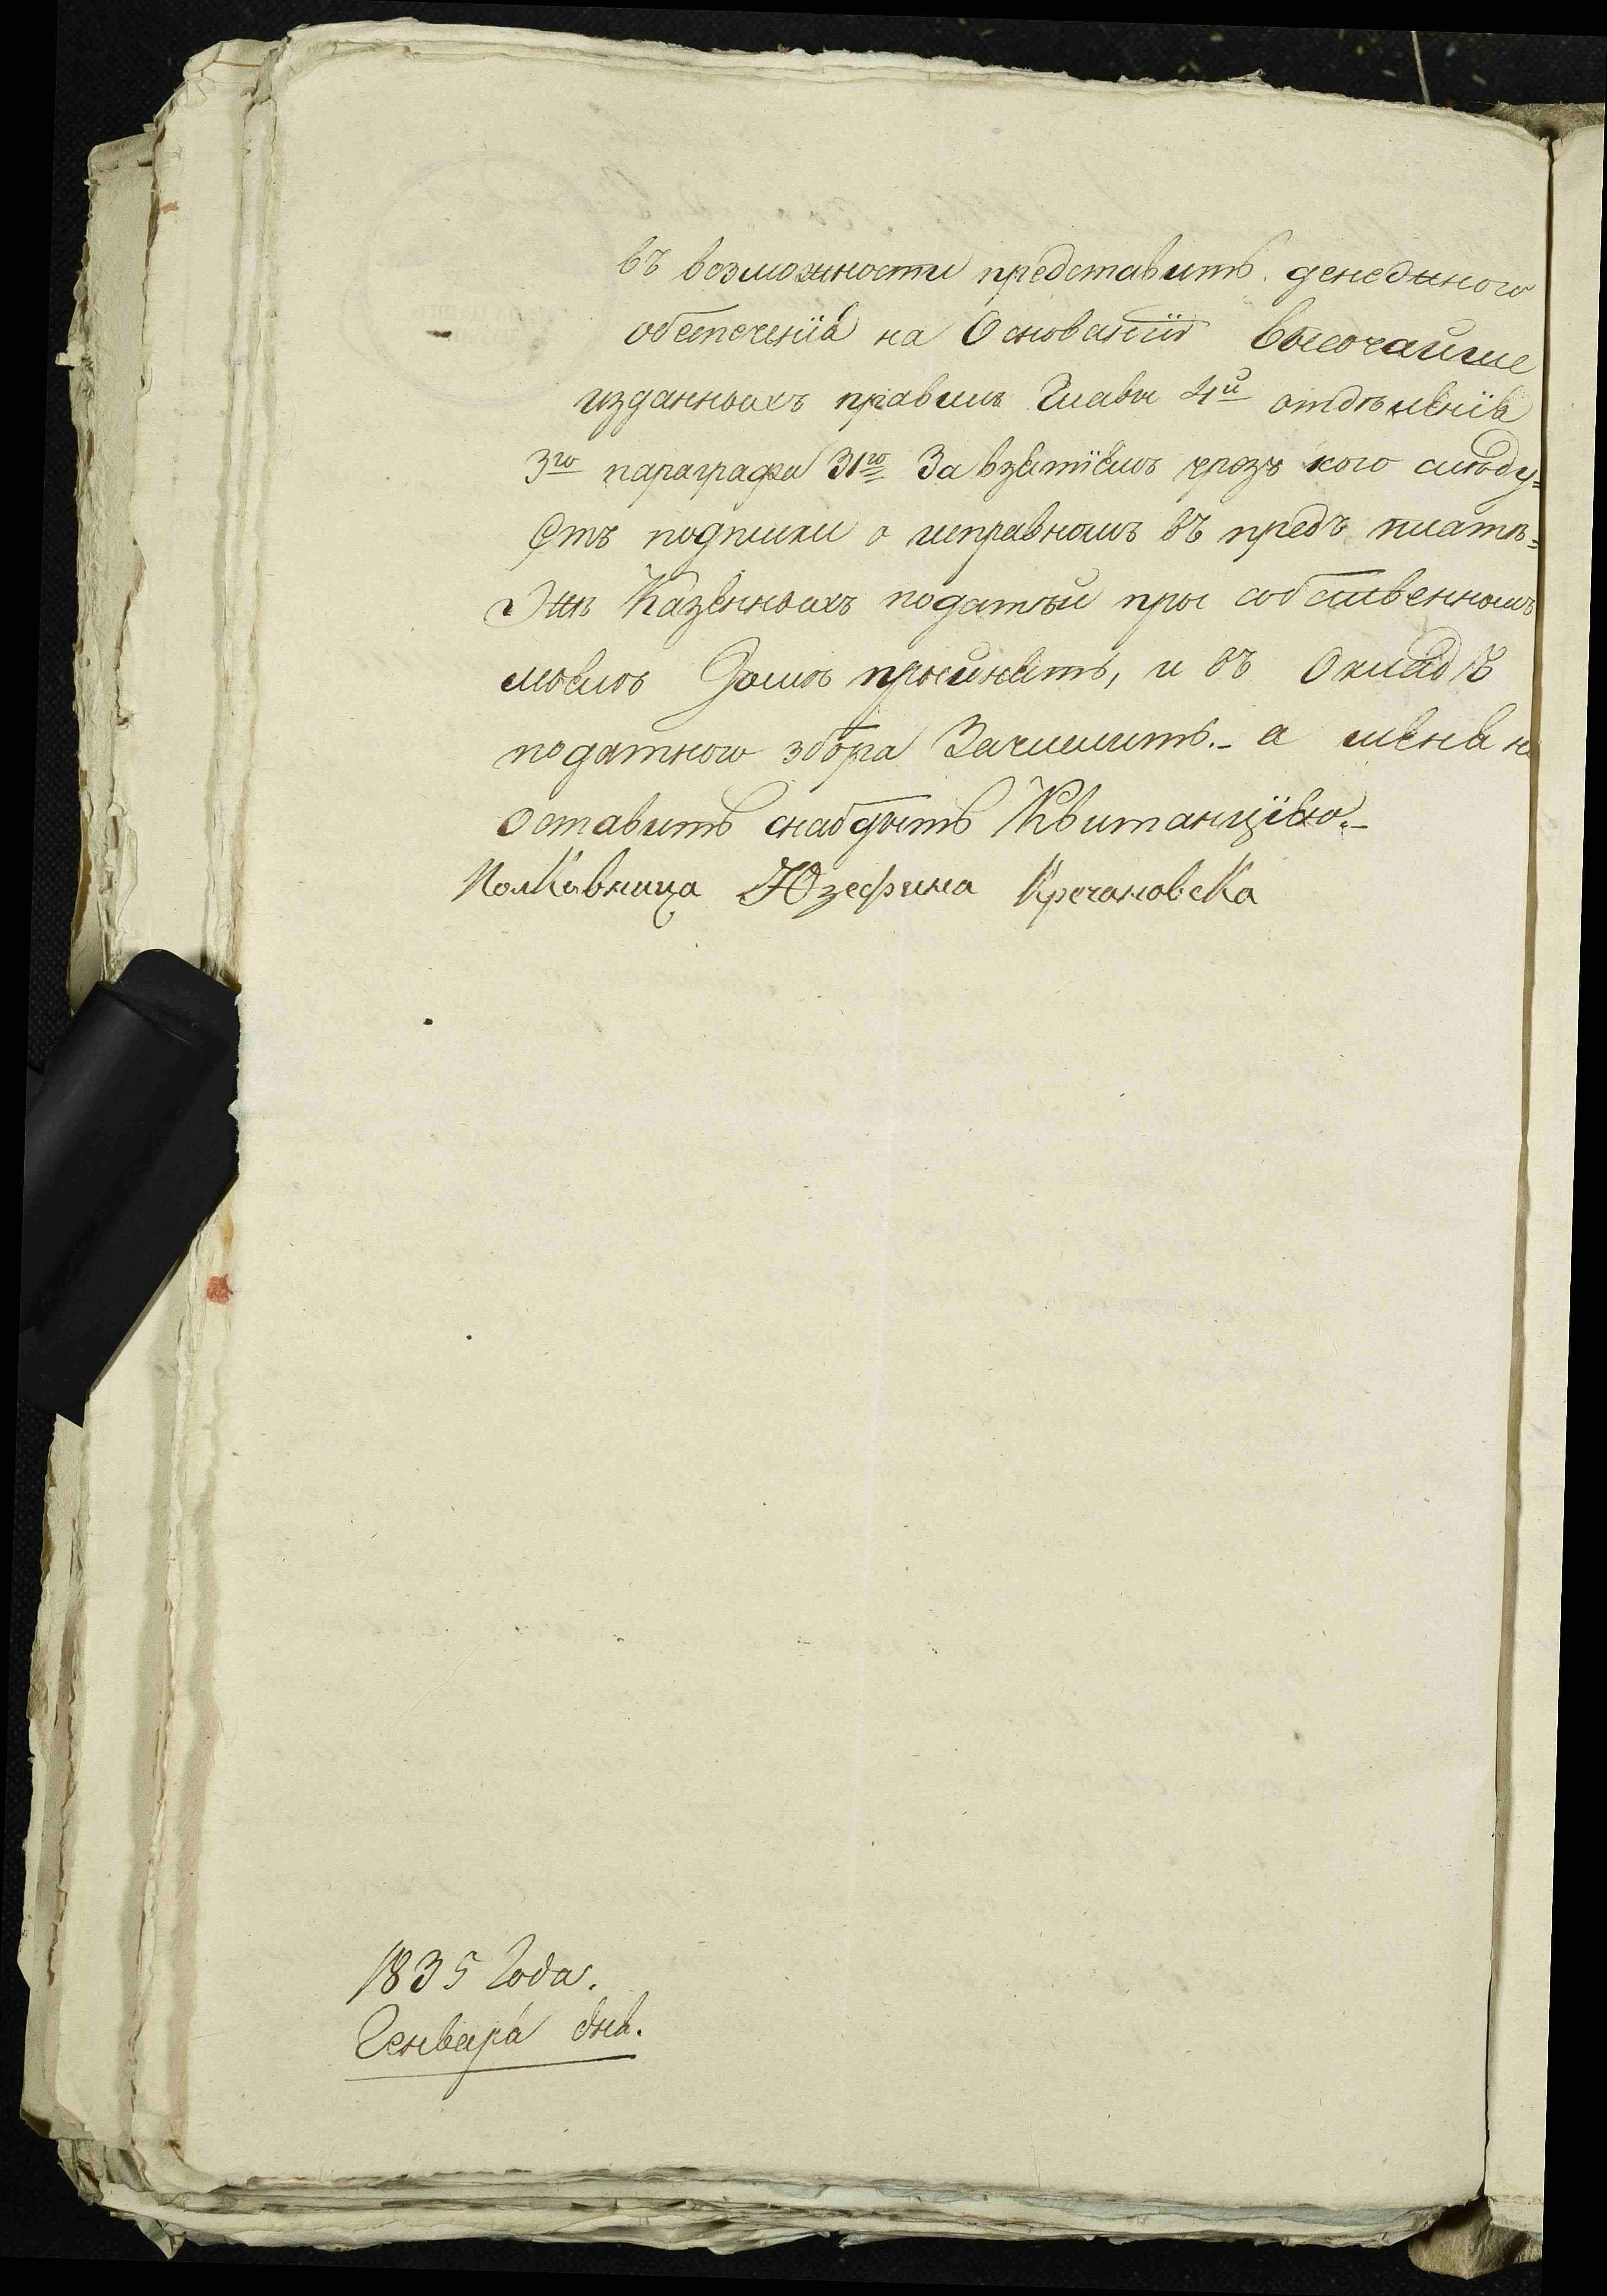 въ возможности представить денежного
обезпеченiя на Основанiи высочайше
изданныхъ правилъ Главы 4й отдѣленiя
3го параграфа 31го За взятiемъ чрозъ кого слѣду=
Етъ подписки о исправномъ въ предъ платѣ=
жѣ Казенныхъ податѣй при собственномъ
моемъ домѣ прыинять, и въ Окладъ
податного збора Зачислить.- а меня не
Оставить снабдыть Квитанцiею.-
Полковница Юзефина Кречановска
1835 Года.
Генваря дня.